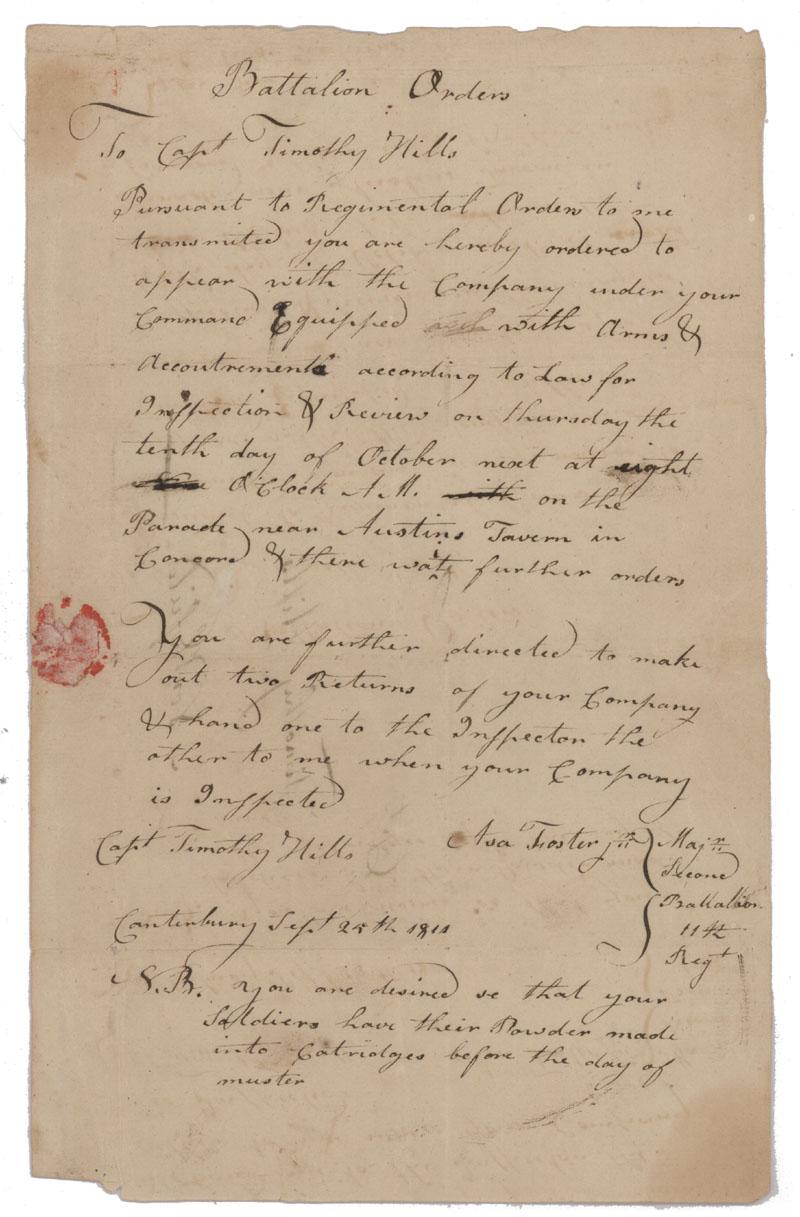 Battalion Orders
To Capt Timothy Hills
Pursuant to Regimental Orders to me
transmited you are hereby ordered to
appear with the Company under your
Command Equipped with Arms &
Accoutrements according to Law for
Inspection & Review on thursday the
tenth day of October next at eight
O'Clock A.M. on the
Parade near Austins Tavern in
Concord & there wate further orders
You are further directed to make
out two Returns of your Company
& hand one to the Inspector the
other to me when your Company
is Inspected
Capt Timothy Hills
Asa Foster jr. Majr.
Second
Battalion
11th
Regt
Canterbury Sept 25th 1811
N.B. you are desired se that your
Soldiers have their Powder made
into Catridges before the day of
muster